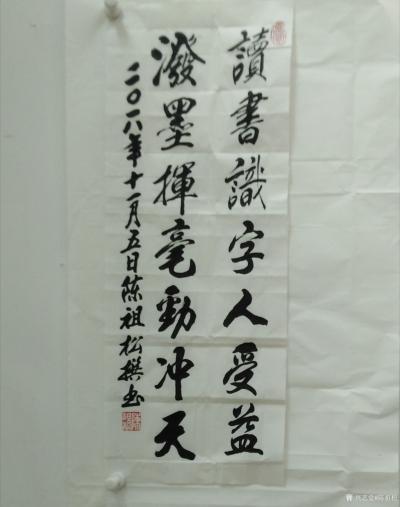 讀書識字人受益
潑墨揮毫勁冲天
二〇一八年十一月五日陈祖松撰书